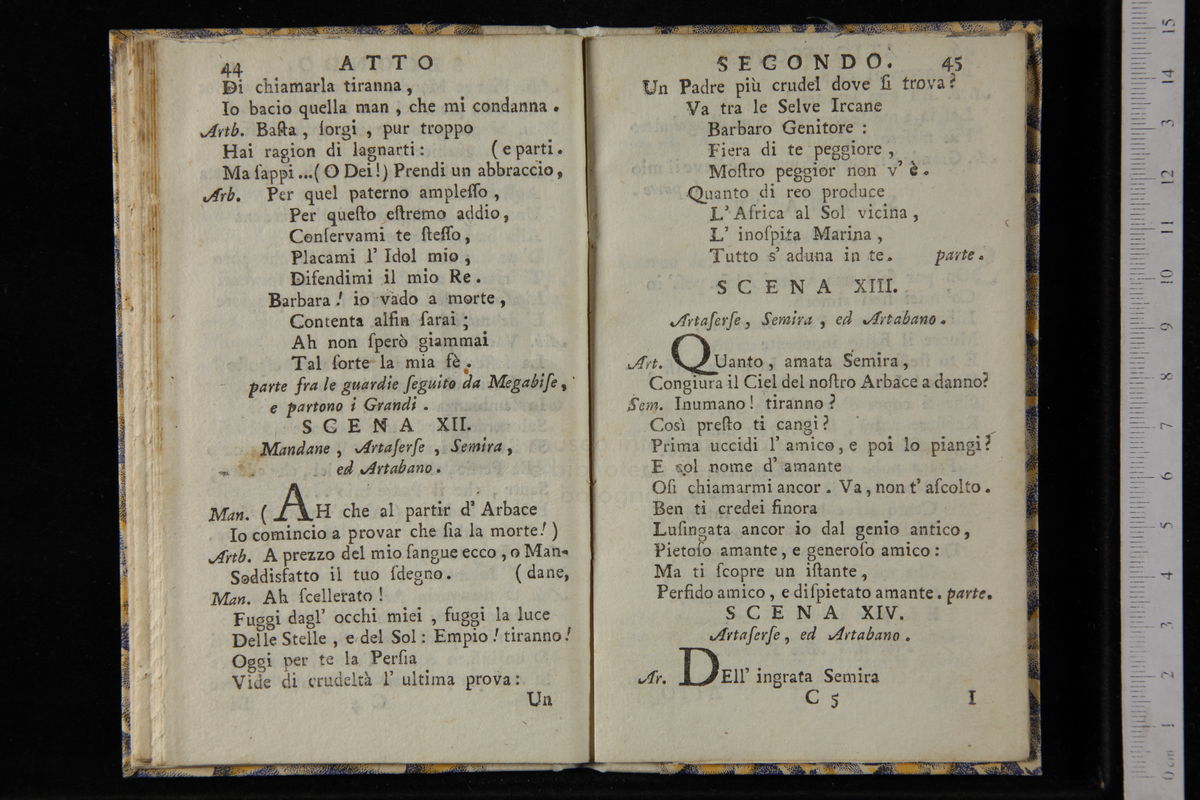 44 ATTO
Di chiamarla tiranna,
Io bacio quella man, che mi condanna.
Artb. Baſta, ſorgi, pur troppo
Hai ragion di lagnarti: (e parti.
Ma ſappi...(O Dei!) Prendi un abbraccio,
Arb. Per quel paterno ampleſſo,
Per queſto eſtremo addio,
Conſervami te ſteſſo,
Placami l' Idol mio,
Difendimi il mio Re.
Barbara! io vado a morte,
Contenta alfin ſarai;
Ah non ſperò giammai
Tal ſorte la mia fè.
parte fra le guardie ſeguito da Megabiſe,
e partono i Grandi.
SCENA XII.
Mandane, Artaſerſe, Semira,
ed Artabano.
Man. (AH che al partir d' Arbace
Io comincio a provar che ſia la morte!)
Artb. A prezzo del mio ſangue ecco, o Man-
Soddisfatto il tuo ſdegno. (dane,
Man. Ah ſcellerato!
Fuggi dagl' occhi miei, fuggi la luce
Delle Stelle, e del Sol: Empio! tiranno!
Oggi per te la Perſia
Vide di crudeltà l' ultima prova:
Un
SECONDO. 45
Un Padre più crudel dove ſi trova?
Va tra le Selve Ircane
Barbaro Genitore:
Fiera di te peggiore,
Moſtro peggior non v' è.
Quanto di reo produce
L' Africa al Sol vicina,
L' inoſpita Marina,
Tutto s' aduna in te. parte.
SCENA XIII.
Artaſerſe, Semira, ed Artabano.
Art. QUanto, amata Semira,
Congiura il Ciel del noſtro Arbace a danno?
Sem. Inumano! tiranno?
Così preſto ti cangi?
Prima uccidi l' amico, e poi lo piangi?
E col nome d' amante
Oſi chiamarmi ancor. Va, non t' aſcolto.
Ben ti credei finora
Luſingata ancor io dal genio antico,
Pietoſo amante, e generoſo amico:
Ma ti ſcopre un iſtante,
Perfido amico, e diſpietato amante. parte.
SCENA XIV.
Artaſerſe, ed Artabano.
Ar. DEll' ingrata Semira
C 5 I